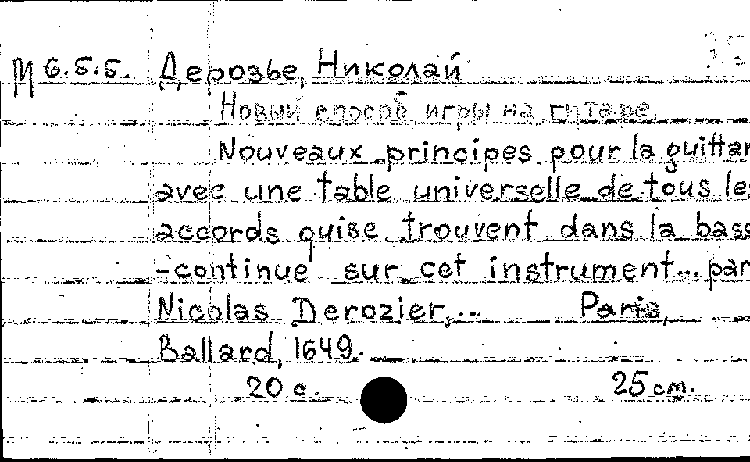 М 6.5.5. Дерозье, Николай
Новый способ игры на гитаре
Nouveaux principes pour la guittar
avec une table universelle de tous les
accords quise trouvent dans la bass
-continue sur cet instrument... par
Nicolas Derozier,... Paris,
Ballard, 1649.
20 с. 25 см.